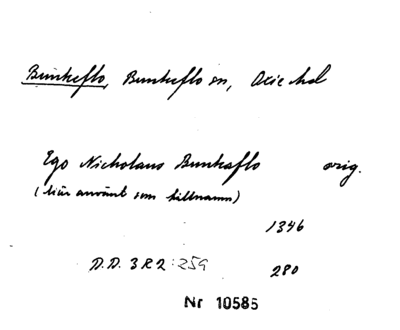 Bunkeflo, Bunkeflo sn, Oxie hd
Ego Nicholaus Bunkæflo orig.
(här använt som tillnamn)
1346
D.D. 3 R 2:259 280
Nr 10585